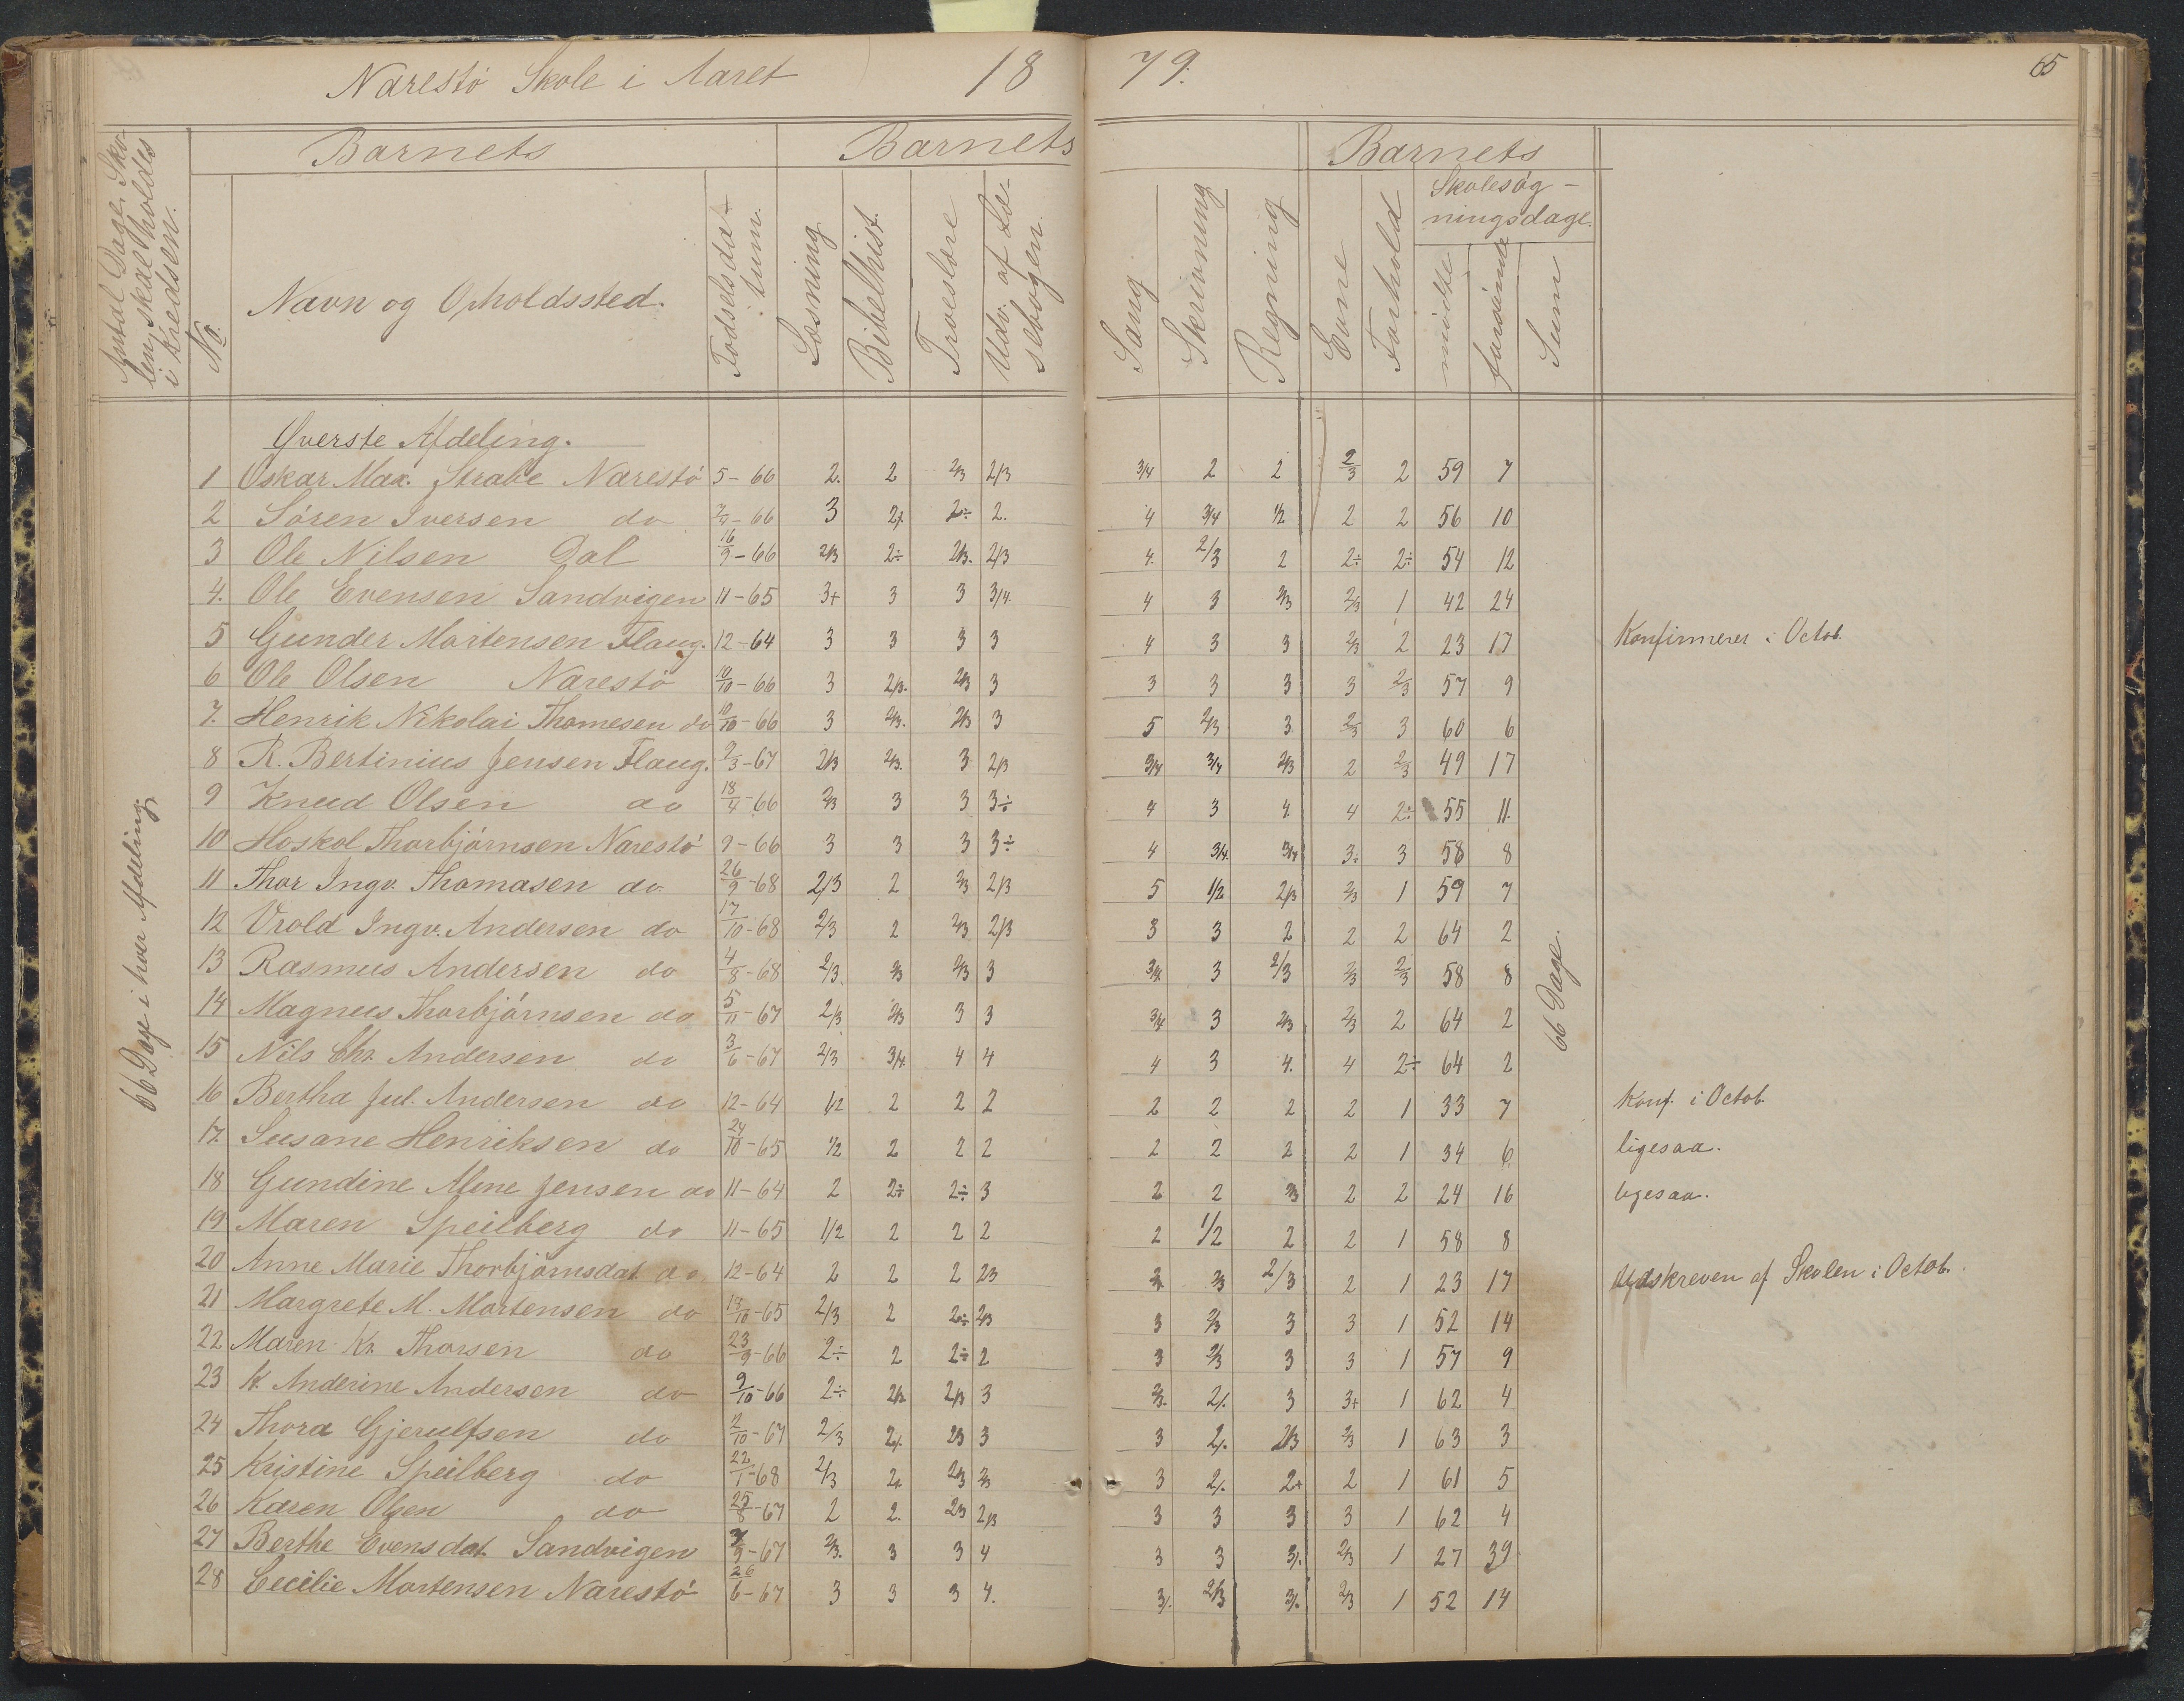 Narestö Skole i Aaret 18 79. 65
Antal Dage, Sko-
len skal holdes
i Kredsen.
Barnets Barnets Barnets
No. Navn og Opholdssted. Fødselsda-
tum. Læsning Bibelhist. Troeslære Udv. af Læ-
sebogen Sang Skrivning Regning Evne Forhold Skolesøg-
ningsdage.
mødte forsømte Sum
Øverste Afdeling.
1 Oskar Max. Strabe Narestö 5-66 2. 2 2/3 2/3 3/4 2 2 2/3 2 59 7
2 Sören Iversen do -66 3 2/. 2÷ 2. 4 3/4 1/2 2 2 56 10
3 Ole Nilsen Dal 16/9-66 2/3 2÷ 2/3. 2/3 4. 2/3 2 2÷ 2÷ 54 12
4. Ole Evensen Sandvigen 11-65 3+ 3 3 3/4. 4 3 2/3 2/3 1 42 24
5 Gunder Mortensen Flaug. 12-64 3 3 3 3 4 3 3 2/3 2 23 17 Konfirmeres i Octob.
6 Ole Olsen Narestö 10/10-66 3 2/3. 2/3 3 3 3 3 3 2/3 57 9
7. Henrik Nikolai Thomesen do 10/10-66 3 2/3. 2/3 3 5 2/3 3 2/3 3 60 6
8 R. Bertinius Jensen Flaug. 2/3-67 2/3 2/3. 3 2/3 3/4 3/4 2/3 2 2/3 49 17
9 Knud Olsen do 18/4-66 2/3 3 3 3÷ 4 3 4. 4 2÷ 55 11.
10 Hoskol Thorbjörnsen Narestö 9-66 3 3 3 3÷ 4 3/4. 3/4 3÷ 3 58 8
11 Thor Ingv. Thomasen do. 26/9-68 2/3 2 2/3 2/3 5 1/2 2/3 2/3 1 59 7
12 Vrold Ingv. Andersen do 17/10-68 2/3 2 2/3 2/3 3 3 2 2 2 64 2
13 Rasmus Andersen do 4/8-68 2/3. 2/3 2/3 3 3/4. 3 2/3 2/3 2/3 58 8
14 Magnus Thorbjörnsen do 5/11-67 2/3 2/3 3 3 3/4 3 2/3 2/3 2 64 2
15 Nils Chr. Andersen do 3/6-67 2/3 3/4. 4 4 4 3 4. 4 2÷ 64 2
16 Bertha Jul. Andersen do 12-64 1/2 2 2 2 2 2 2 2 1 33 7 Konf. i Octob.
17. Susane Henriksen do 24/10-65 1/2 2 2 2 2 2 2 2 1 34 6 ligesaa.
18 Gundine Alene Jensen do 11-64 2 2÷ 2÷ 3 2 2 2/3 2 2 24 16 ligesaa.
19 Maren Speilberg do 11-65 1/2 2 2 2 2 1/2 2 2 1 58 8
20 Anne Marie Thorbjörnsdat. do 12-64 2 2 2 2/3 2/3 2/3 2 1 23 17 Udskreven af Skolen i Octob.
21 Margrete M. Mortensen do 18/10-65 2/3 2 2÷ 2/3 3 2/3 3 3 1 52 14
22 Maren Kr. Thorsen do 23/9-66 2÷ 2 2÷ 2 3 2/3 3 3 1 57 9
23 K. Anderine Andersen do 9/10-66 2÷ 2/3. 2/3 3 2/3. 2/. 3 3+ 1 62 4
24 Thora Gjerulfsen do 2/10-67 2/3 2/. 2/3 3 3 2/. 2/3 2/3 1 63 3
25 Kristine Speilberg do 22/1-68 2/3 2/. 2/3 2/3 3 2/. 2+ 2 1 61 5
26 Karen Olsen do 25/8-67 2 2. 2/3 2/3 3 3 3 3 1 62 4
27 Berthe Evensdat. Sandvigen /9-67 2/3. 3 3 4 3 3 3/. 2/3 1 27 39
28 Cecilie Mortensen Narestö 26/6-67 3 3 3 4. 3/. 2/3 3/. 2/3 1 52 14
66 Dage i hver Afdeling.
66 Dage.